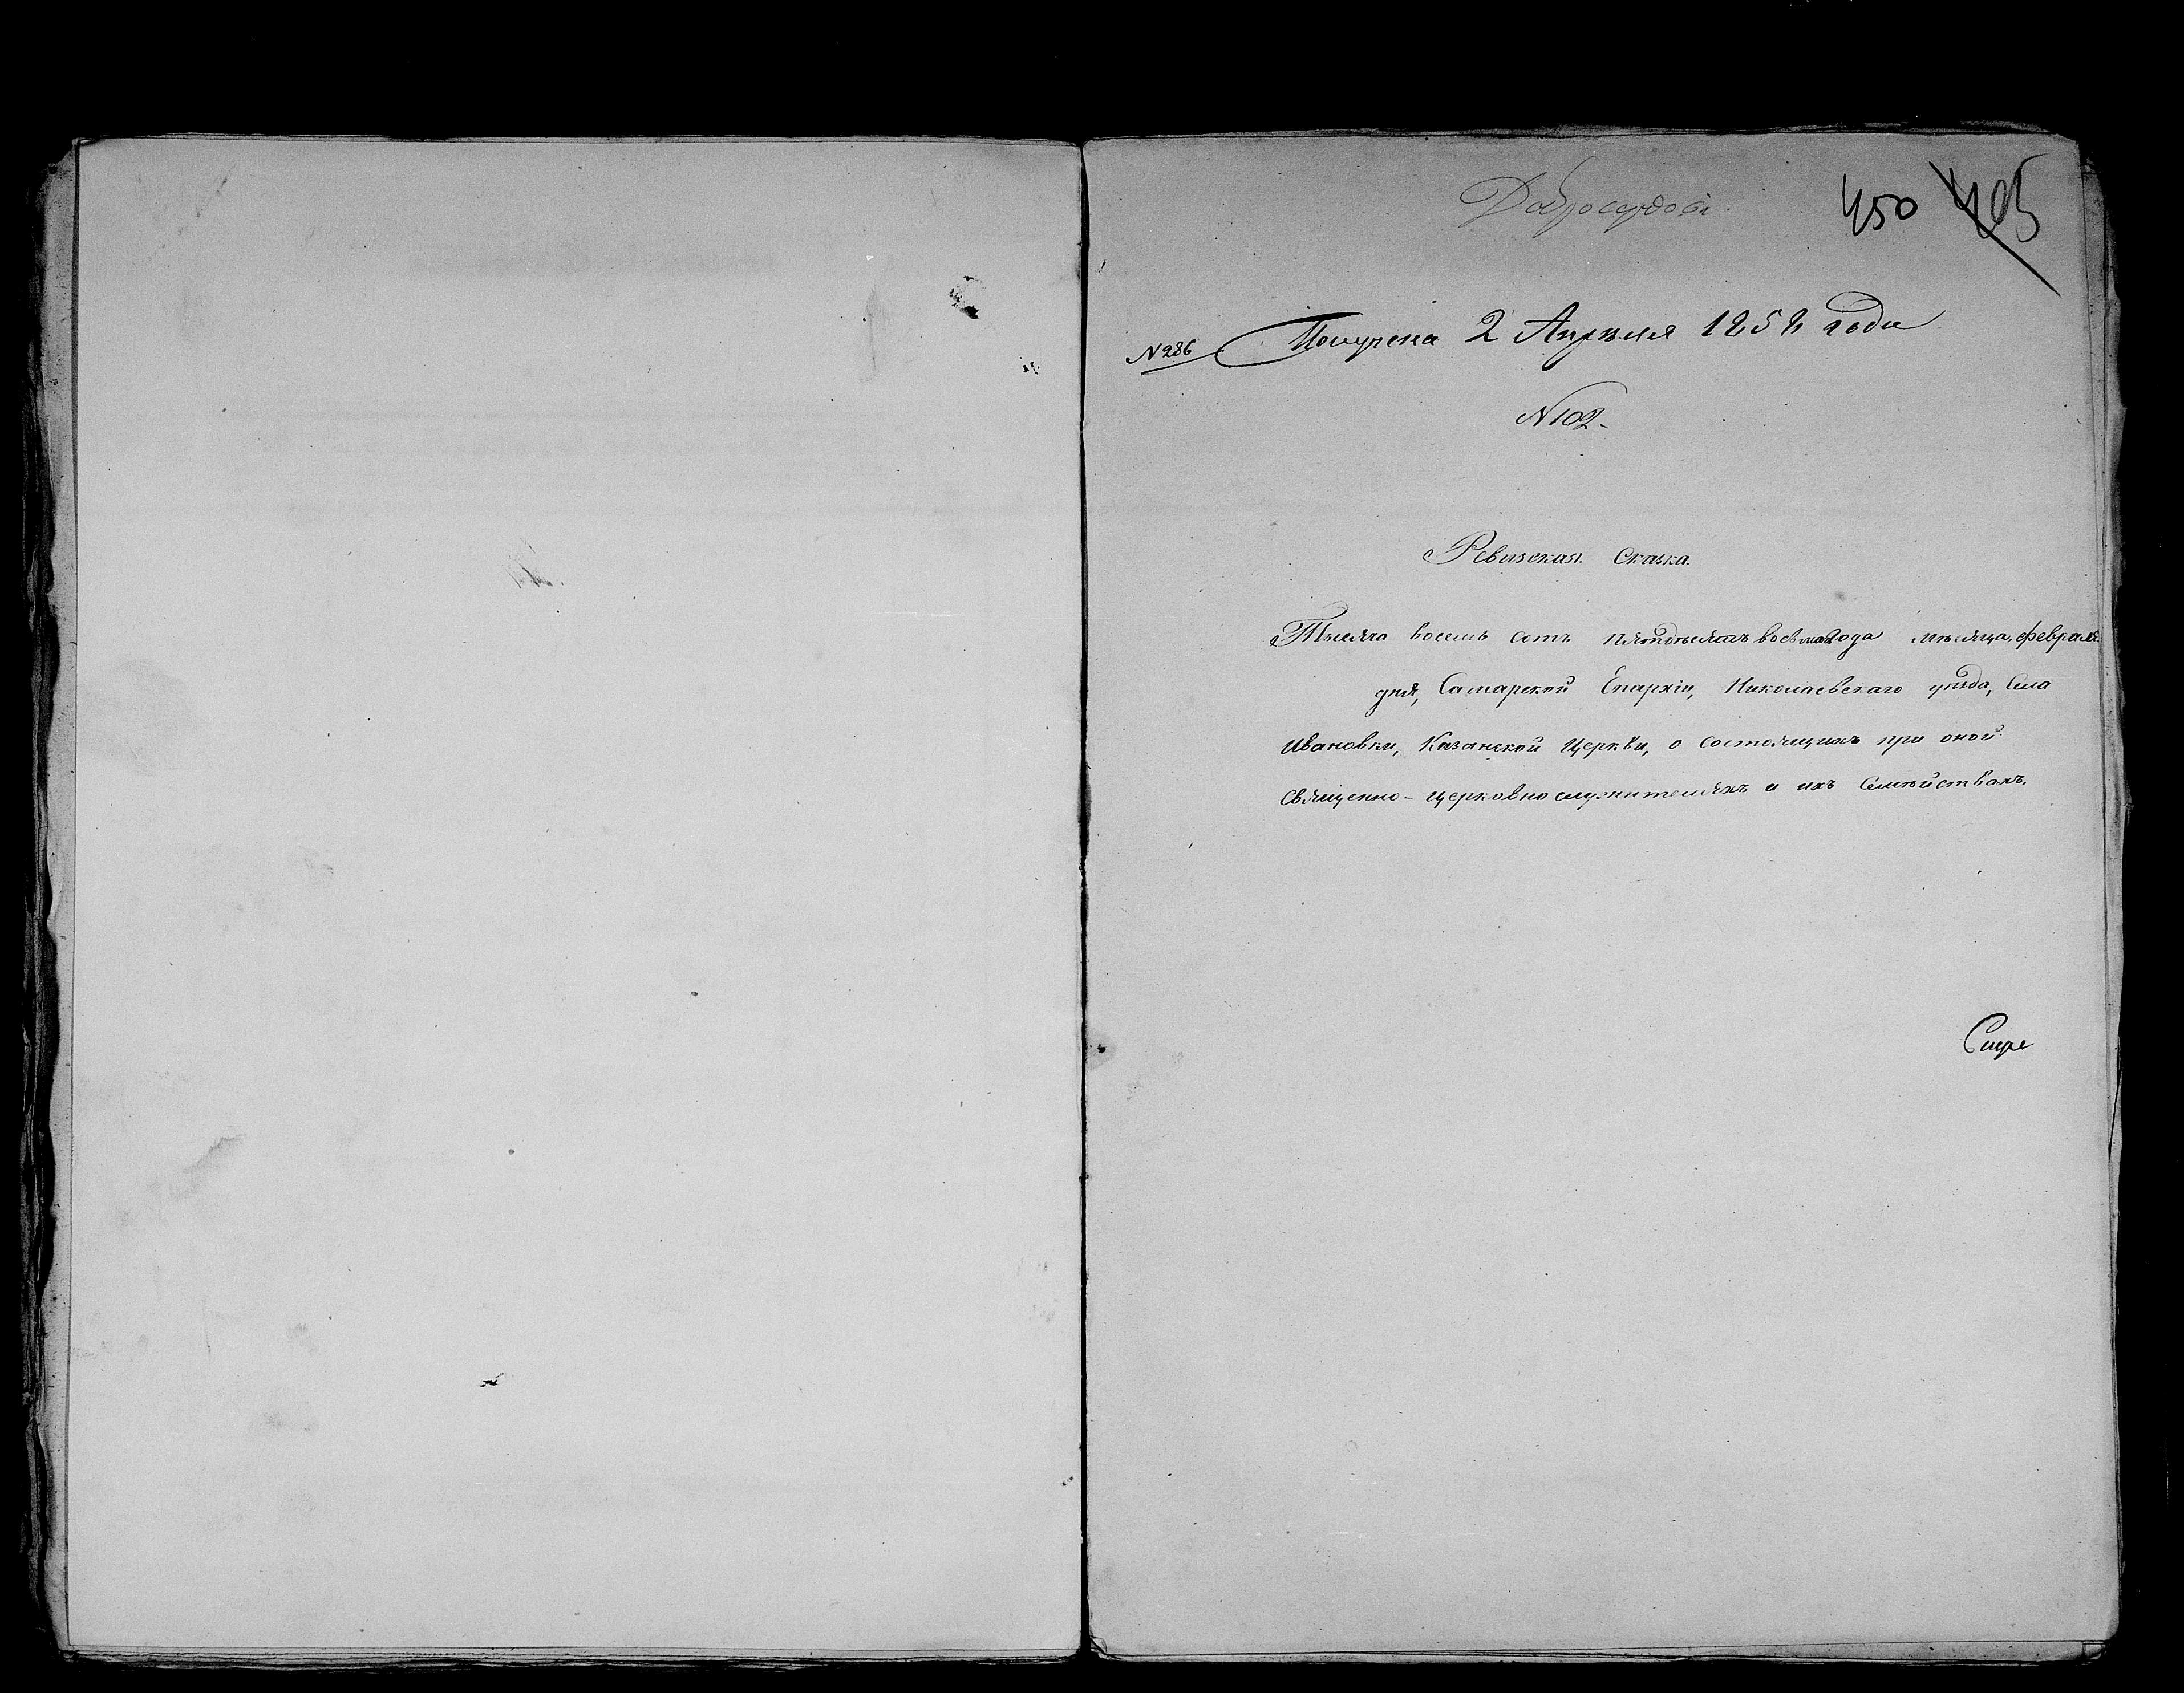 450 405
№ 286 Получена 2 Апрѣля 1858 года
№ 102.
Ревизская Сказка.
Тысяча восемь сотъ пятдесятъ восьмаго года мѣсяца, февраля
дня, Самарской Епархіи, Николаевскаго уѣзда, Села
Ивановки, Казанской Церкви, о состоящихъ при оной
Священно-церковнослужителяхъ и ихъ Семѣйствахъ.